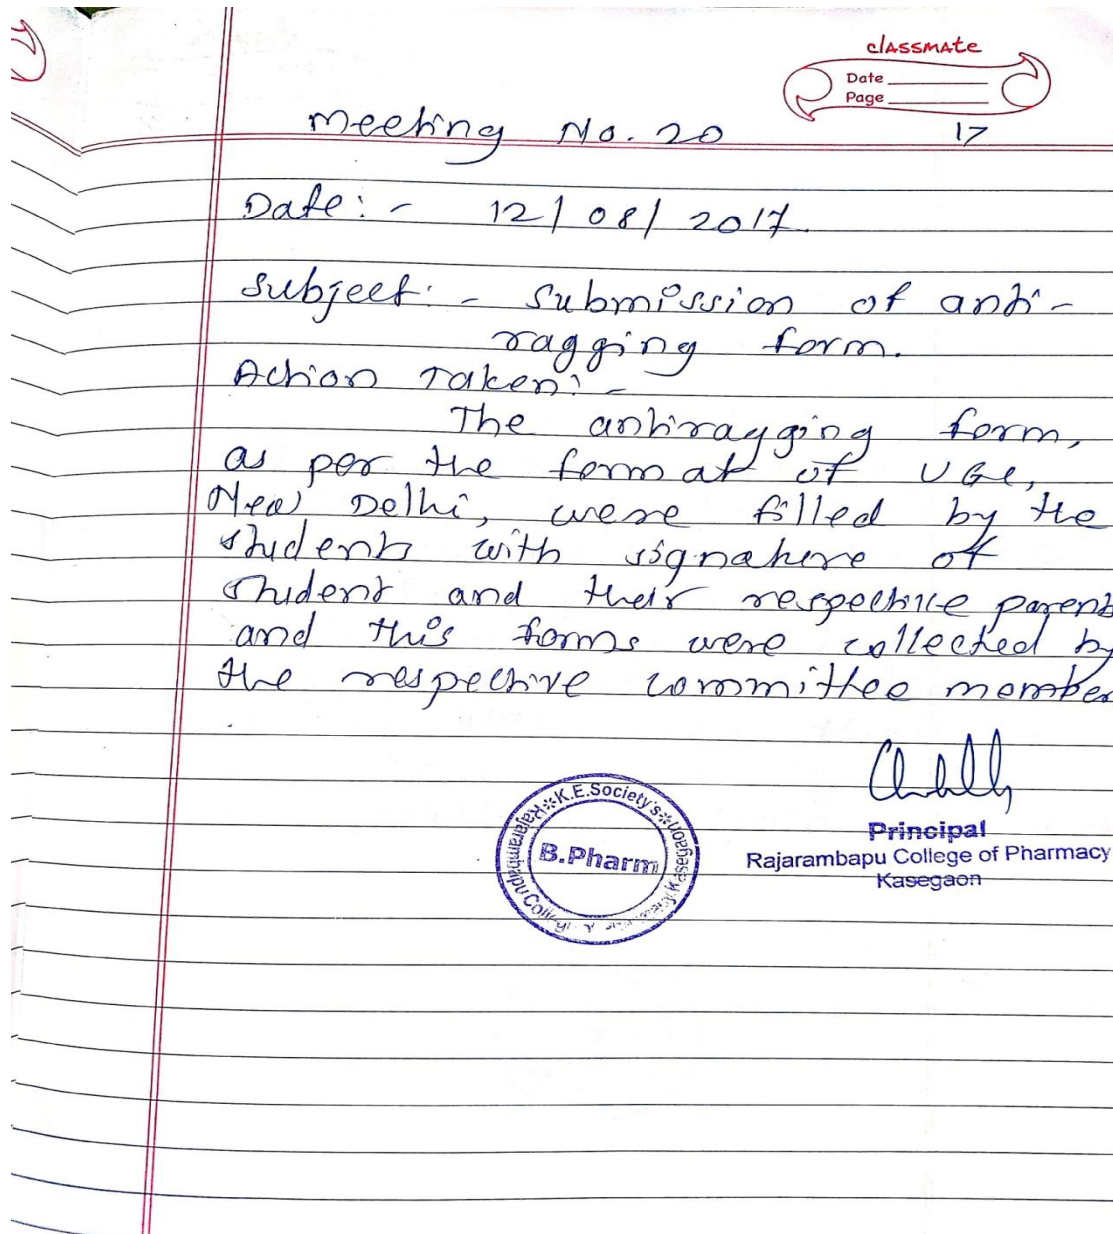 classmate
Date
Page
17
Meeting No. 20
Date: - 12/08/2017.
Subject: - Submission of anti-
ragging form.
Action Taken: -
The antiragging form,
as per the format of UGC,
New Delhi, were filled by the
students with signature of
student and their respective parent
and this forms were collected by
the respective committee member
K.E.Society's
Rajarambapu College of Pharmacy Kasegaon
B.Pharm
Principal
Rajarambapu College of Pharmacy
Kasegaon